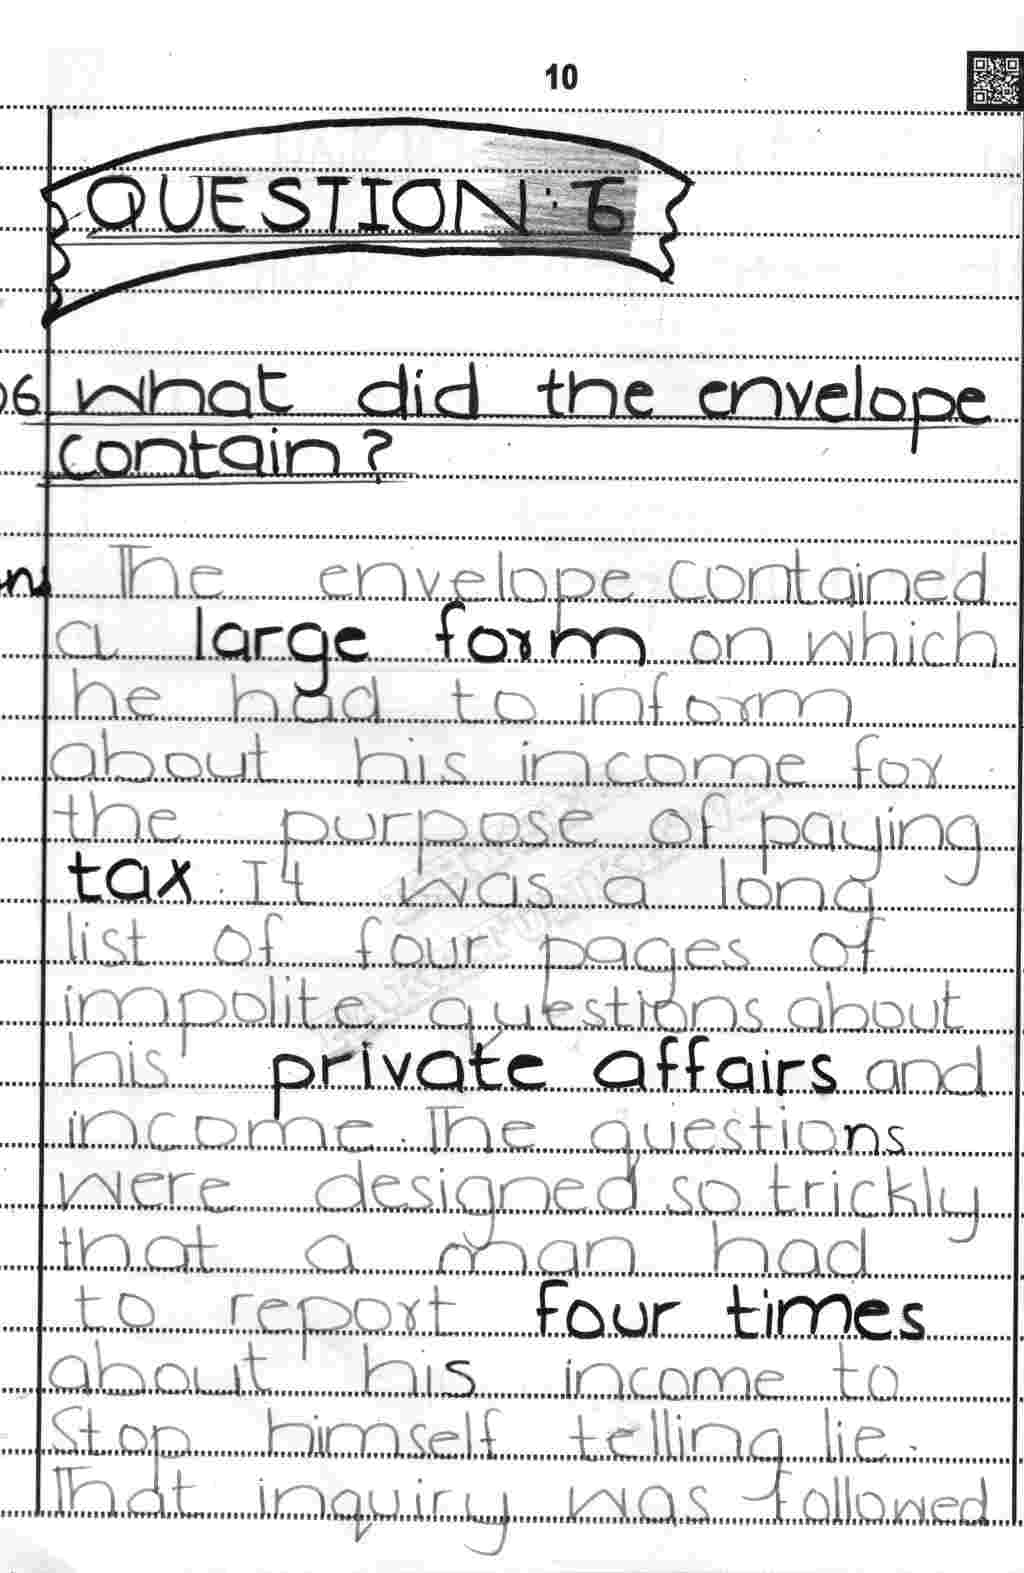 10
QUESTION: 6
06 What did the envelope
contain?
The envelope contained
a large form on which
he had to inform
about his income for
the purpose of paying
tax. It was a long
list of four pages of
impolite questions about
his private affairs and
income. The questions
were designed so trickly
that a man had
to report four times
about his income to
stop himself telling lie.
That inquiry was followed